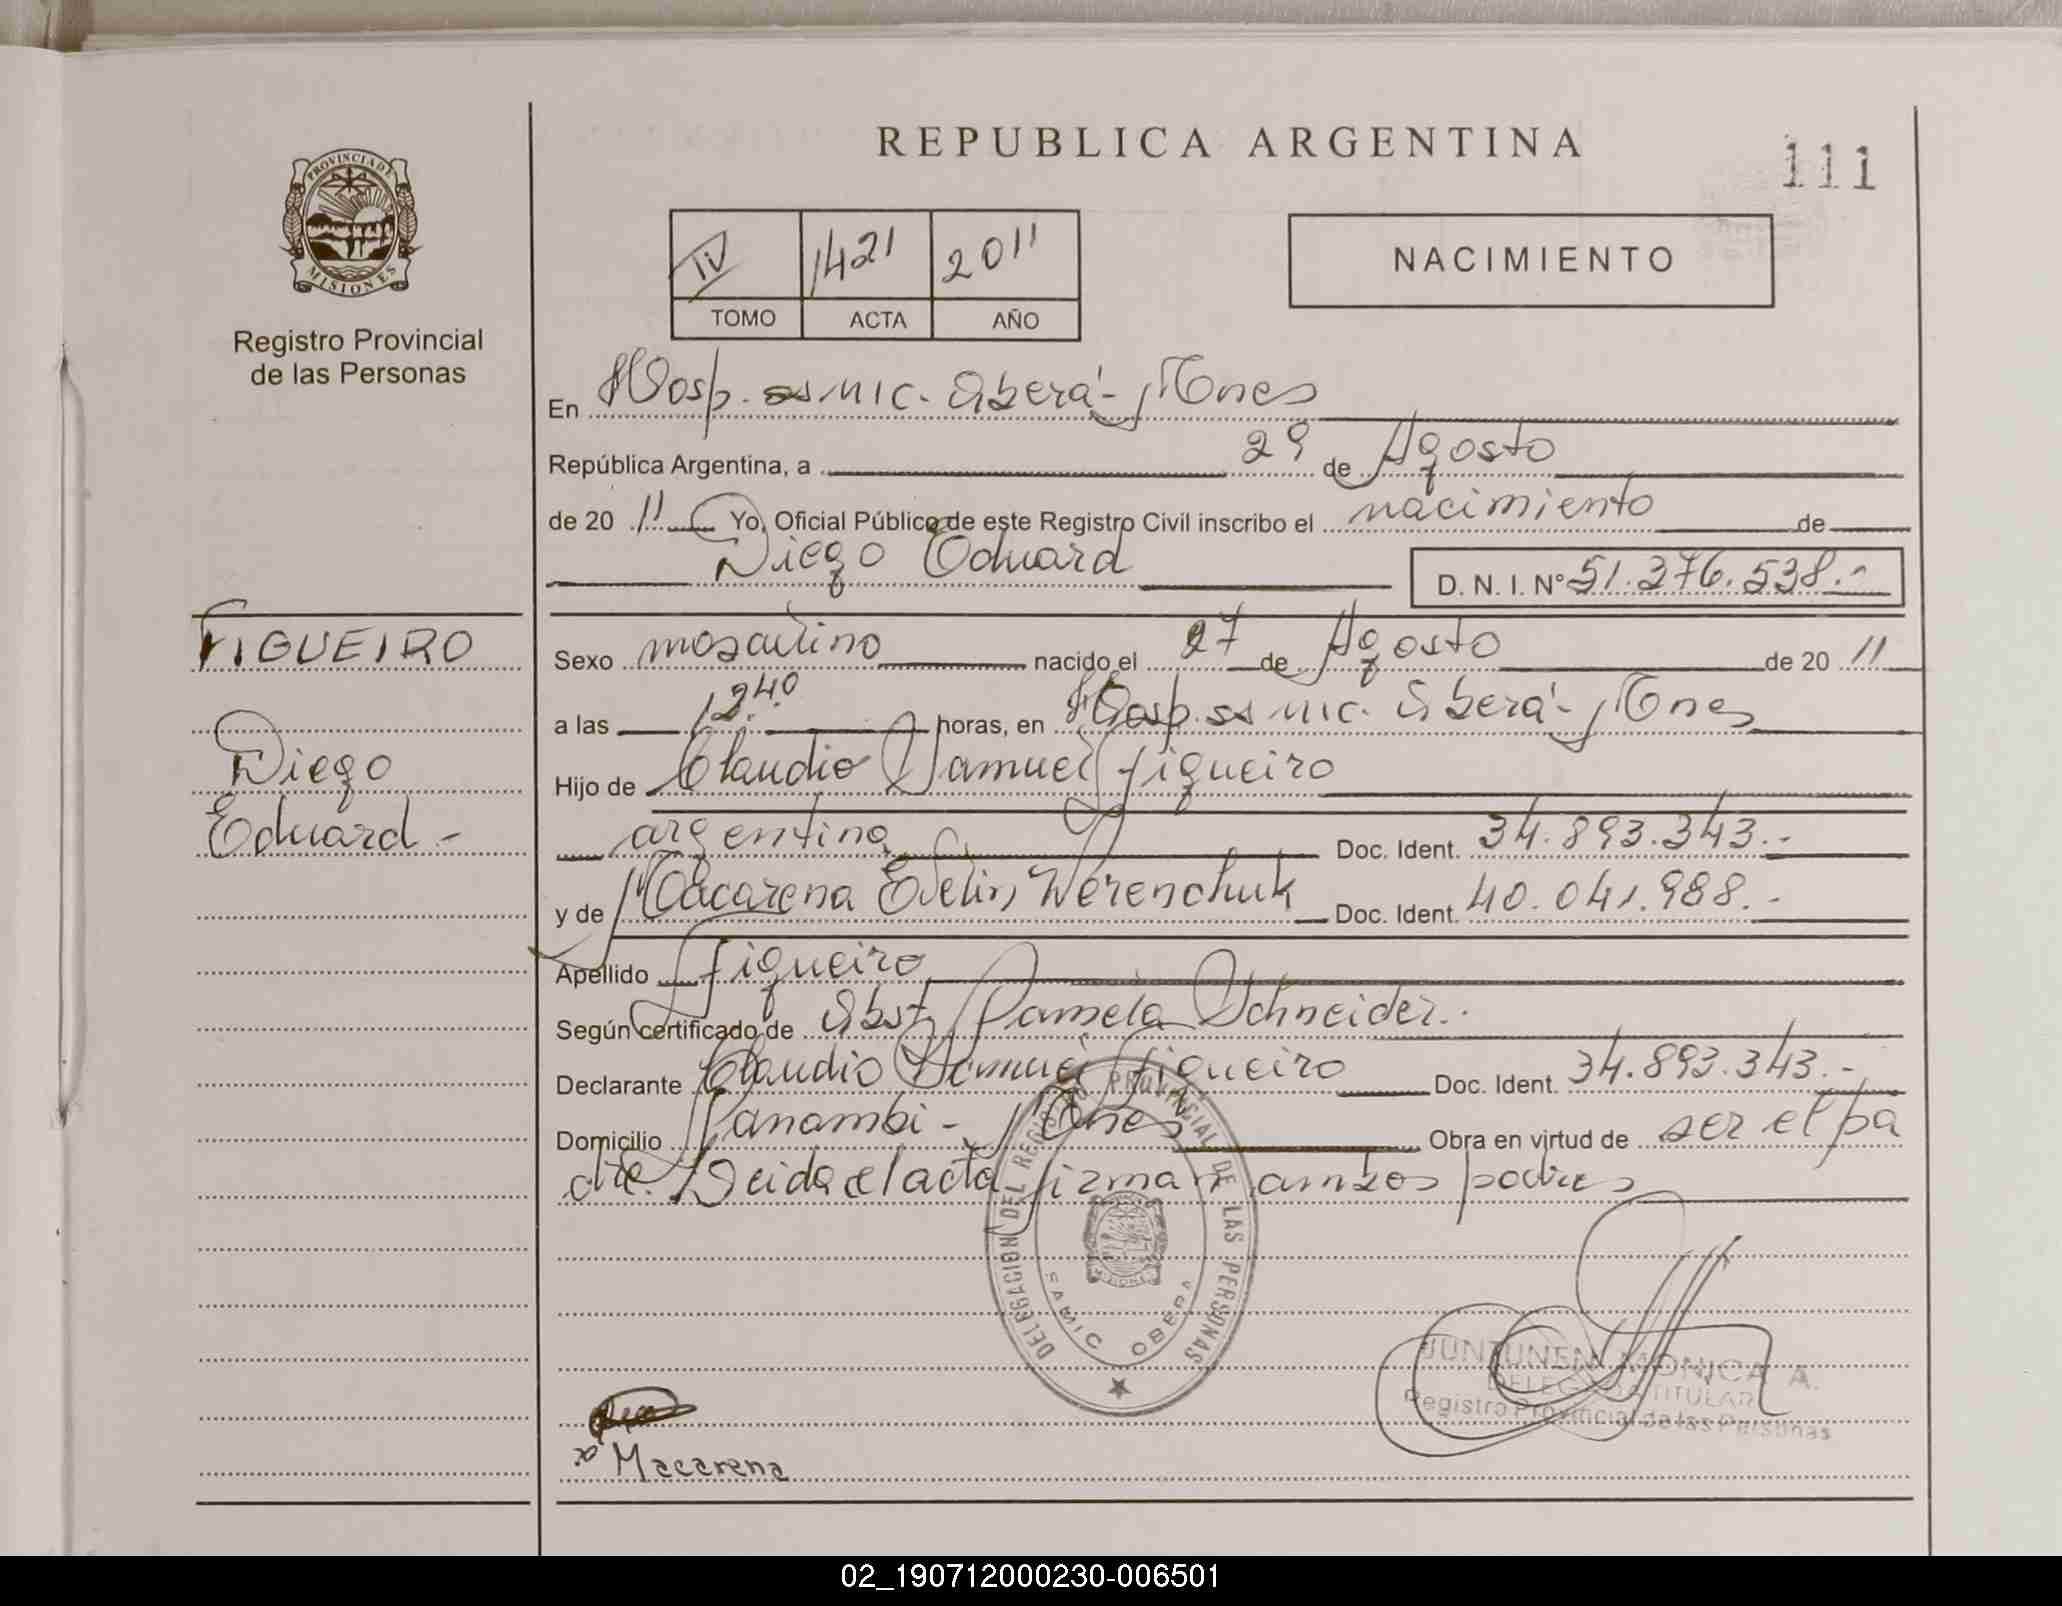 REPUBLICA ARGENTINA
111
PROVINCIA DE
MISIONES
Registro Provincial
de las Personas
IV 1421 2011
TOMO ACTA AÑO
NACIMIENTO
En Hosp. ss mic. Oberá - Mnes
República Argentina, a 29 de Agosto
de 20 11 Yo, Oficial Público de este Registro Civil inscribo el nacimiento de
Diego Eduard
D. N. I. Nº 51.376.538.-
FIGUEIRO
Diego
Eduard -
Sexo masculino nacido el 27 de Agosto de 20 11
a las 12.40 horas, en Hosp. ss mic. Oberá - Mnes
Hijo de Claudio Samuel Figueiro
argentino Doc. Ident. 34.893.343.-
y de Macarena Evelin Werenchuk Doc. Ident. 40.041.988.-
Apellido Figueiro
Según certificado de Obst. Pamela Schneider.
Declarante Claudio Samuel Figueiro Doc. Ident. 34.893.343.-
Domicilio Panambi - Mnes Obra en virtud de ser el pa
dre. Leida el acta firman ambos padres
DELEGACION DEL REGISTRO PROVINCIAL DE LAS PERSONAS
SAMIC OBERA
JUNTUNEN MONICA A.
DELEGADA TITULAR
Registro Provincial de las Personas
Macarena
02_190712000230-006501